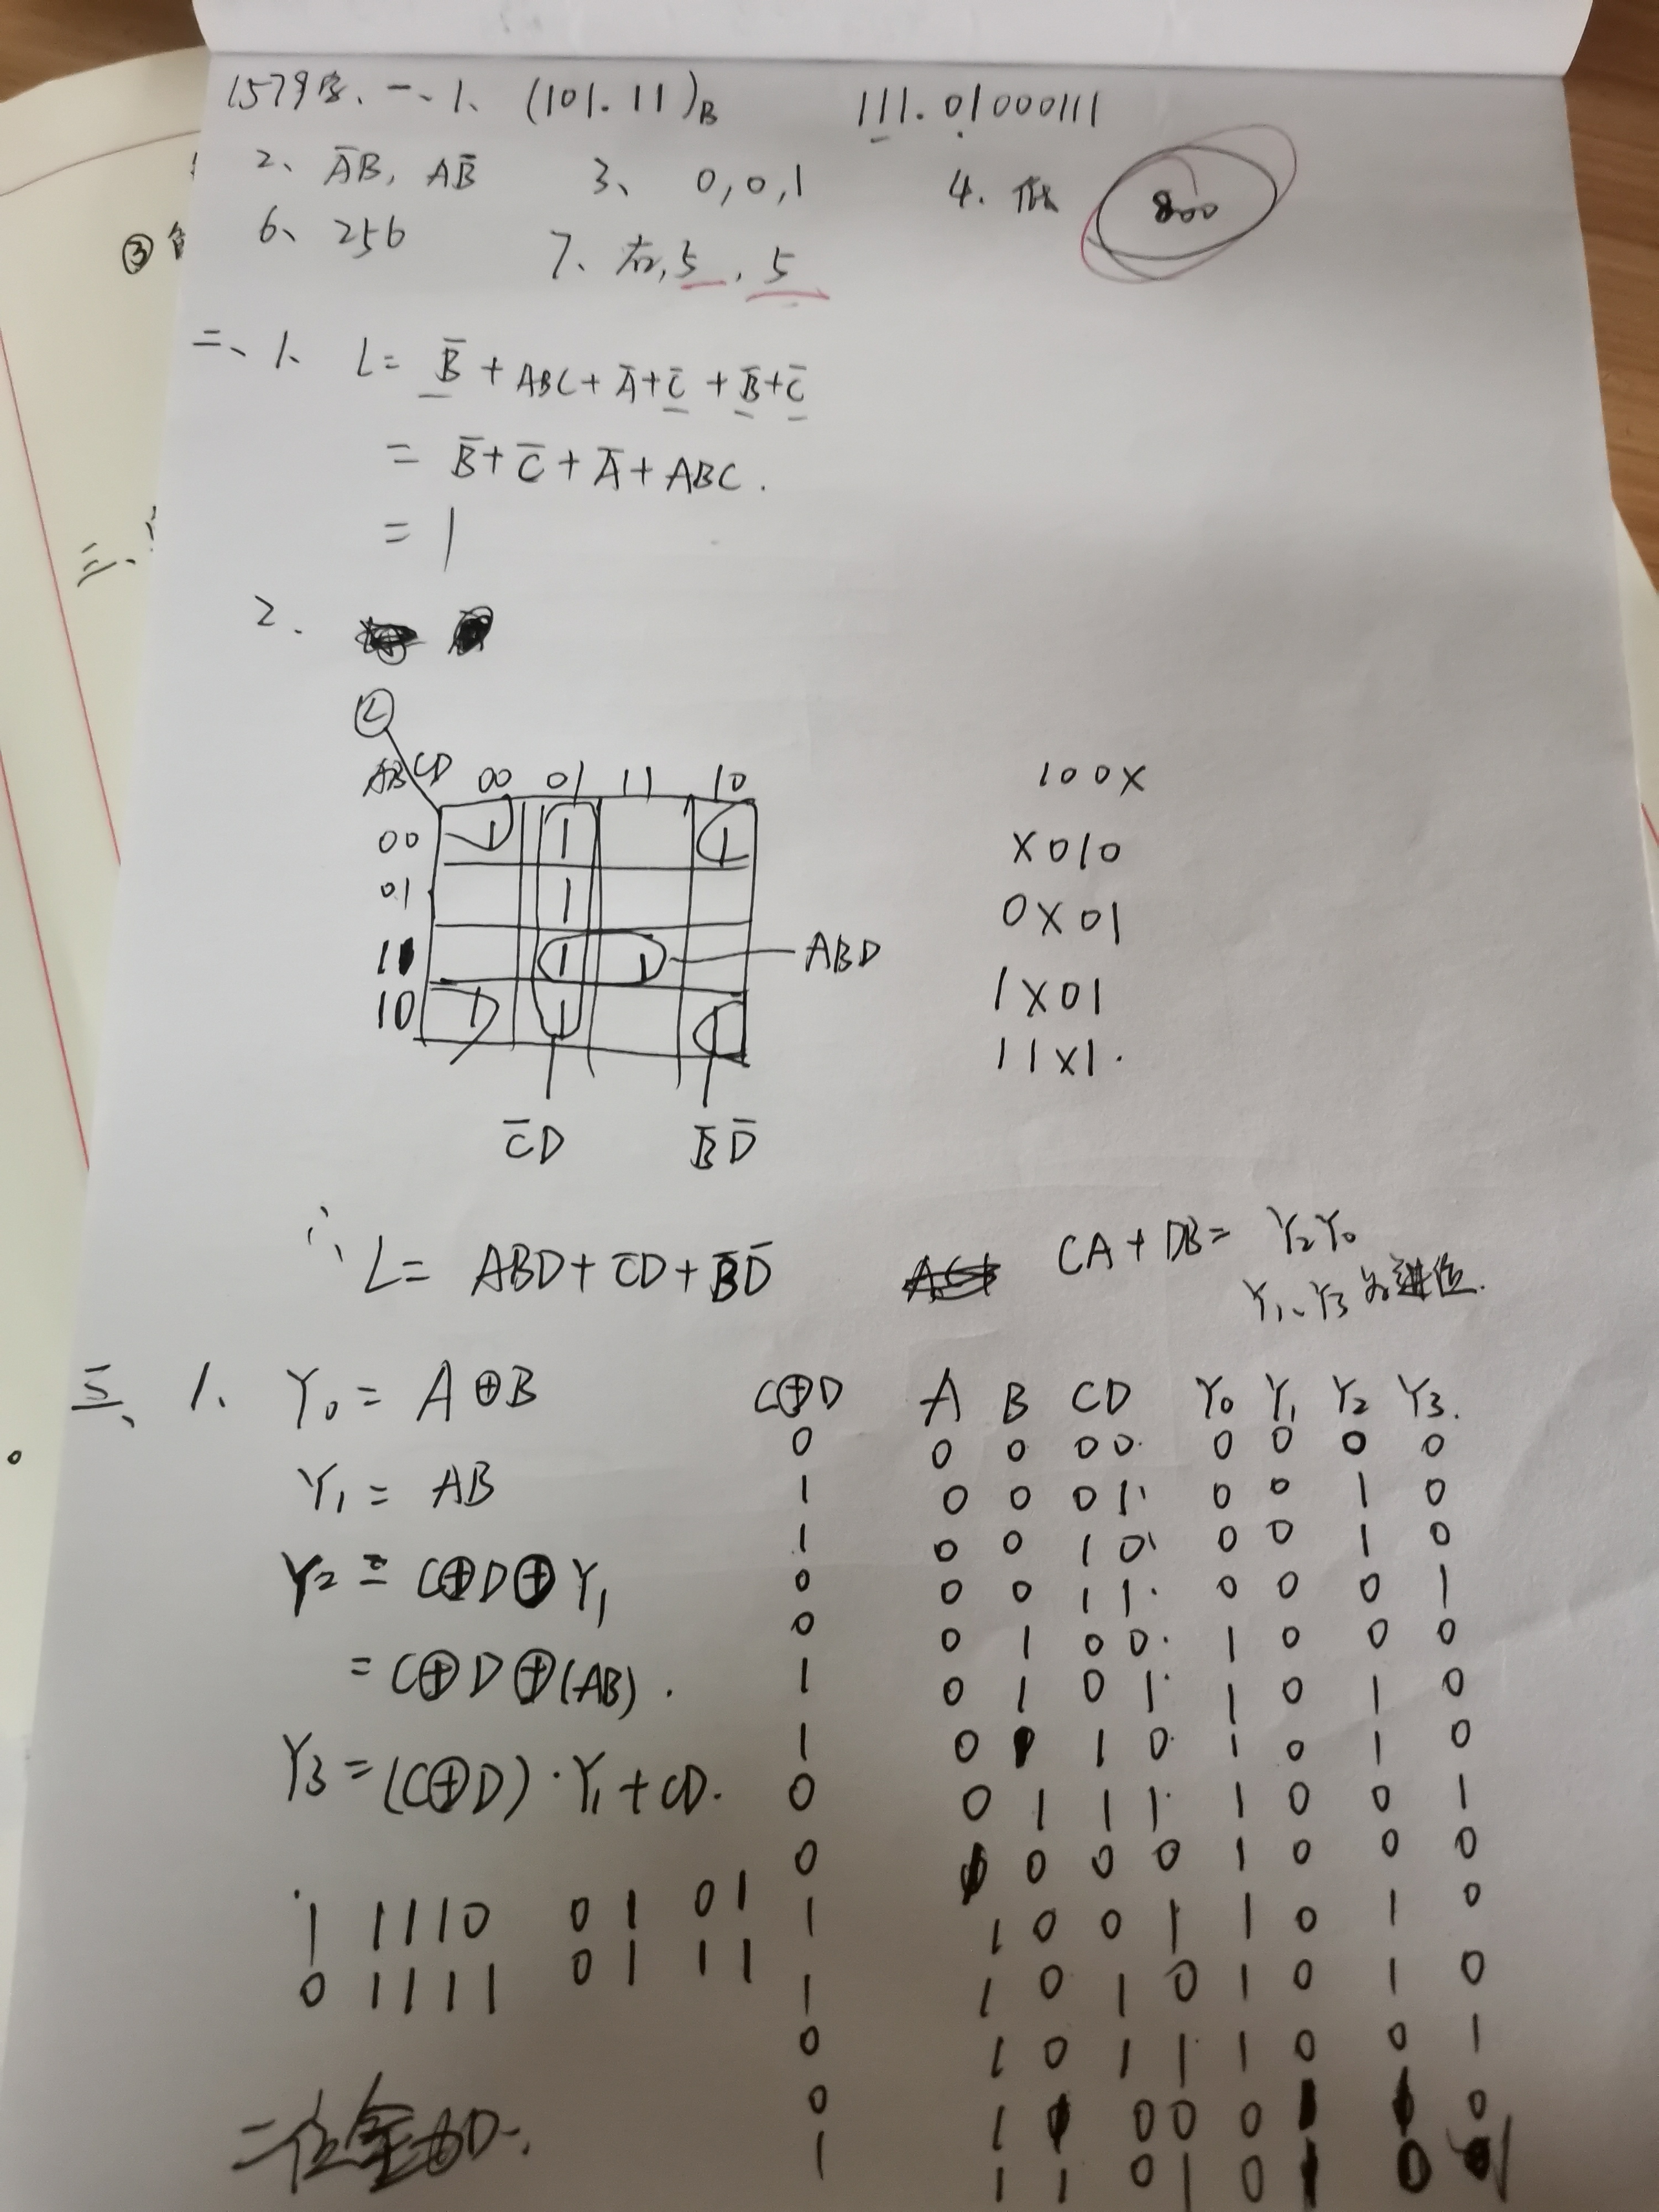 1579 一、1、 (101.11)B 111.01000111
2、 A̅B, AB̅ 3、 0,0,1 4. 低 800
6、 256 7、 右,5,5
③
二、1、 L= B̅+ABC+A̅+C̅+B̅+C̅
= B̅+C̅+A̅+ABC.
= 1
三、
2.
L
AB CD 00 01 11 10
00 1 1 1
01 1
11 1 1 ABD
10 1 1 1
C̅D B̅D̅
100X
X010
0X01
1X01
11X1.
∴ L= ABD+C̅D+B̅D̅
CA+DB= Y₂Y₀
Y₁、Y₃为进位.
三、1、 Y₀= A⊕B
Y₁= AB
Y₂= C⊕D⊕Y₁
= C⊕D⊕(AB).
Y₃=(C⊕D)·Y₁+CD.
1 1110 01 01
0 1111 01 11
二位全加.
C⊕D A B C D Y₀ Y₁ Y₂ Y₃.
0 0 0 0 0 0 0 0 0
1 0 0 0 1 0 0 1 0
1 0 0 1 0 0 0 1 0
0 0 0 1 1 0 0 0 1
0 0 1 0 0 1 0 0 0
1 0 1 0 1 1 0 1 0
1 0 1 1 0 1 0 1 0
0 0 1 1 1 1 0 0 1
0 1 0 0 0 1 0 0 0
1 1 0 0 1 1 0 1 0
1 1 0 1 0 1 0 1 0
0 1 0 1 1 1 0 0 1
0 1 1 0 0 0 1 1 0
1 1 1 0 1 0 1 0 1